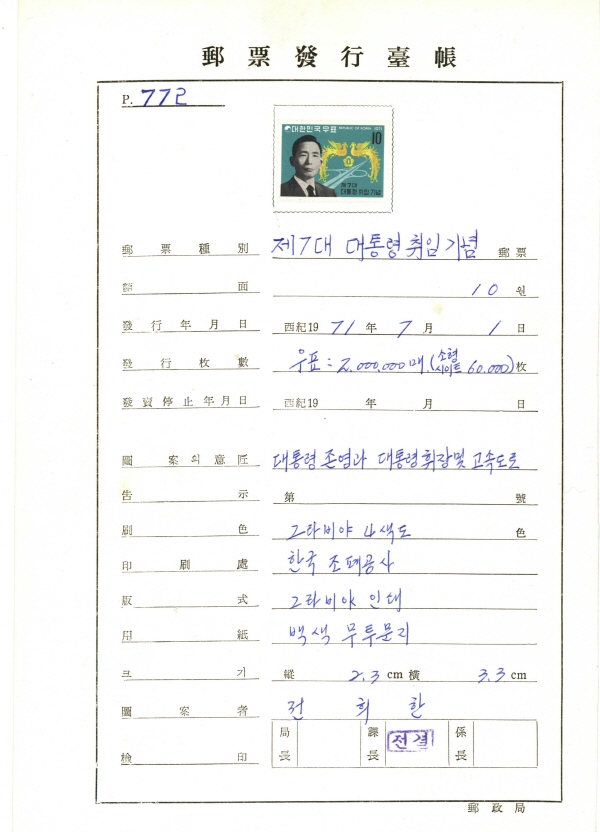 郵票發行臺帳
P. 772
대한민국우표 REPUBLIC OF KOREA 1971
10
제7대
대통령 취임 기념
郵票種別 제7대 대통령 취임 기념 郵票
額面 10 원
發行年月日 西紀19 71 年 7 月 1 日
發行枚數 우표 : 2,000,000매 (소형시이트 60,000) 枚
發賣停止年月日 西紀19 年 月 日
圖案의意匠 대통령 존영과 대통령휘장및 고속도로
告示 第 號
刷色 그라비야 4색도 色
印刷處 한국 조폐공사
版式 그라비야 인쇄
用紙 백색 무투문지
크기 縱 2.3 cm 橫 3.3 cm
圖案者 전희한
檢印 局長 課長 전결 係長
郵政局